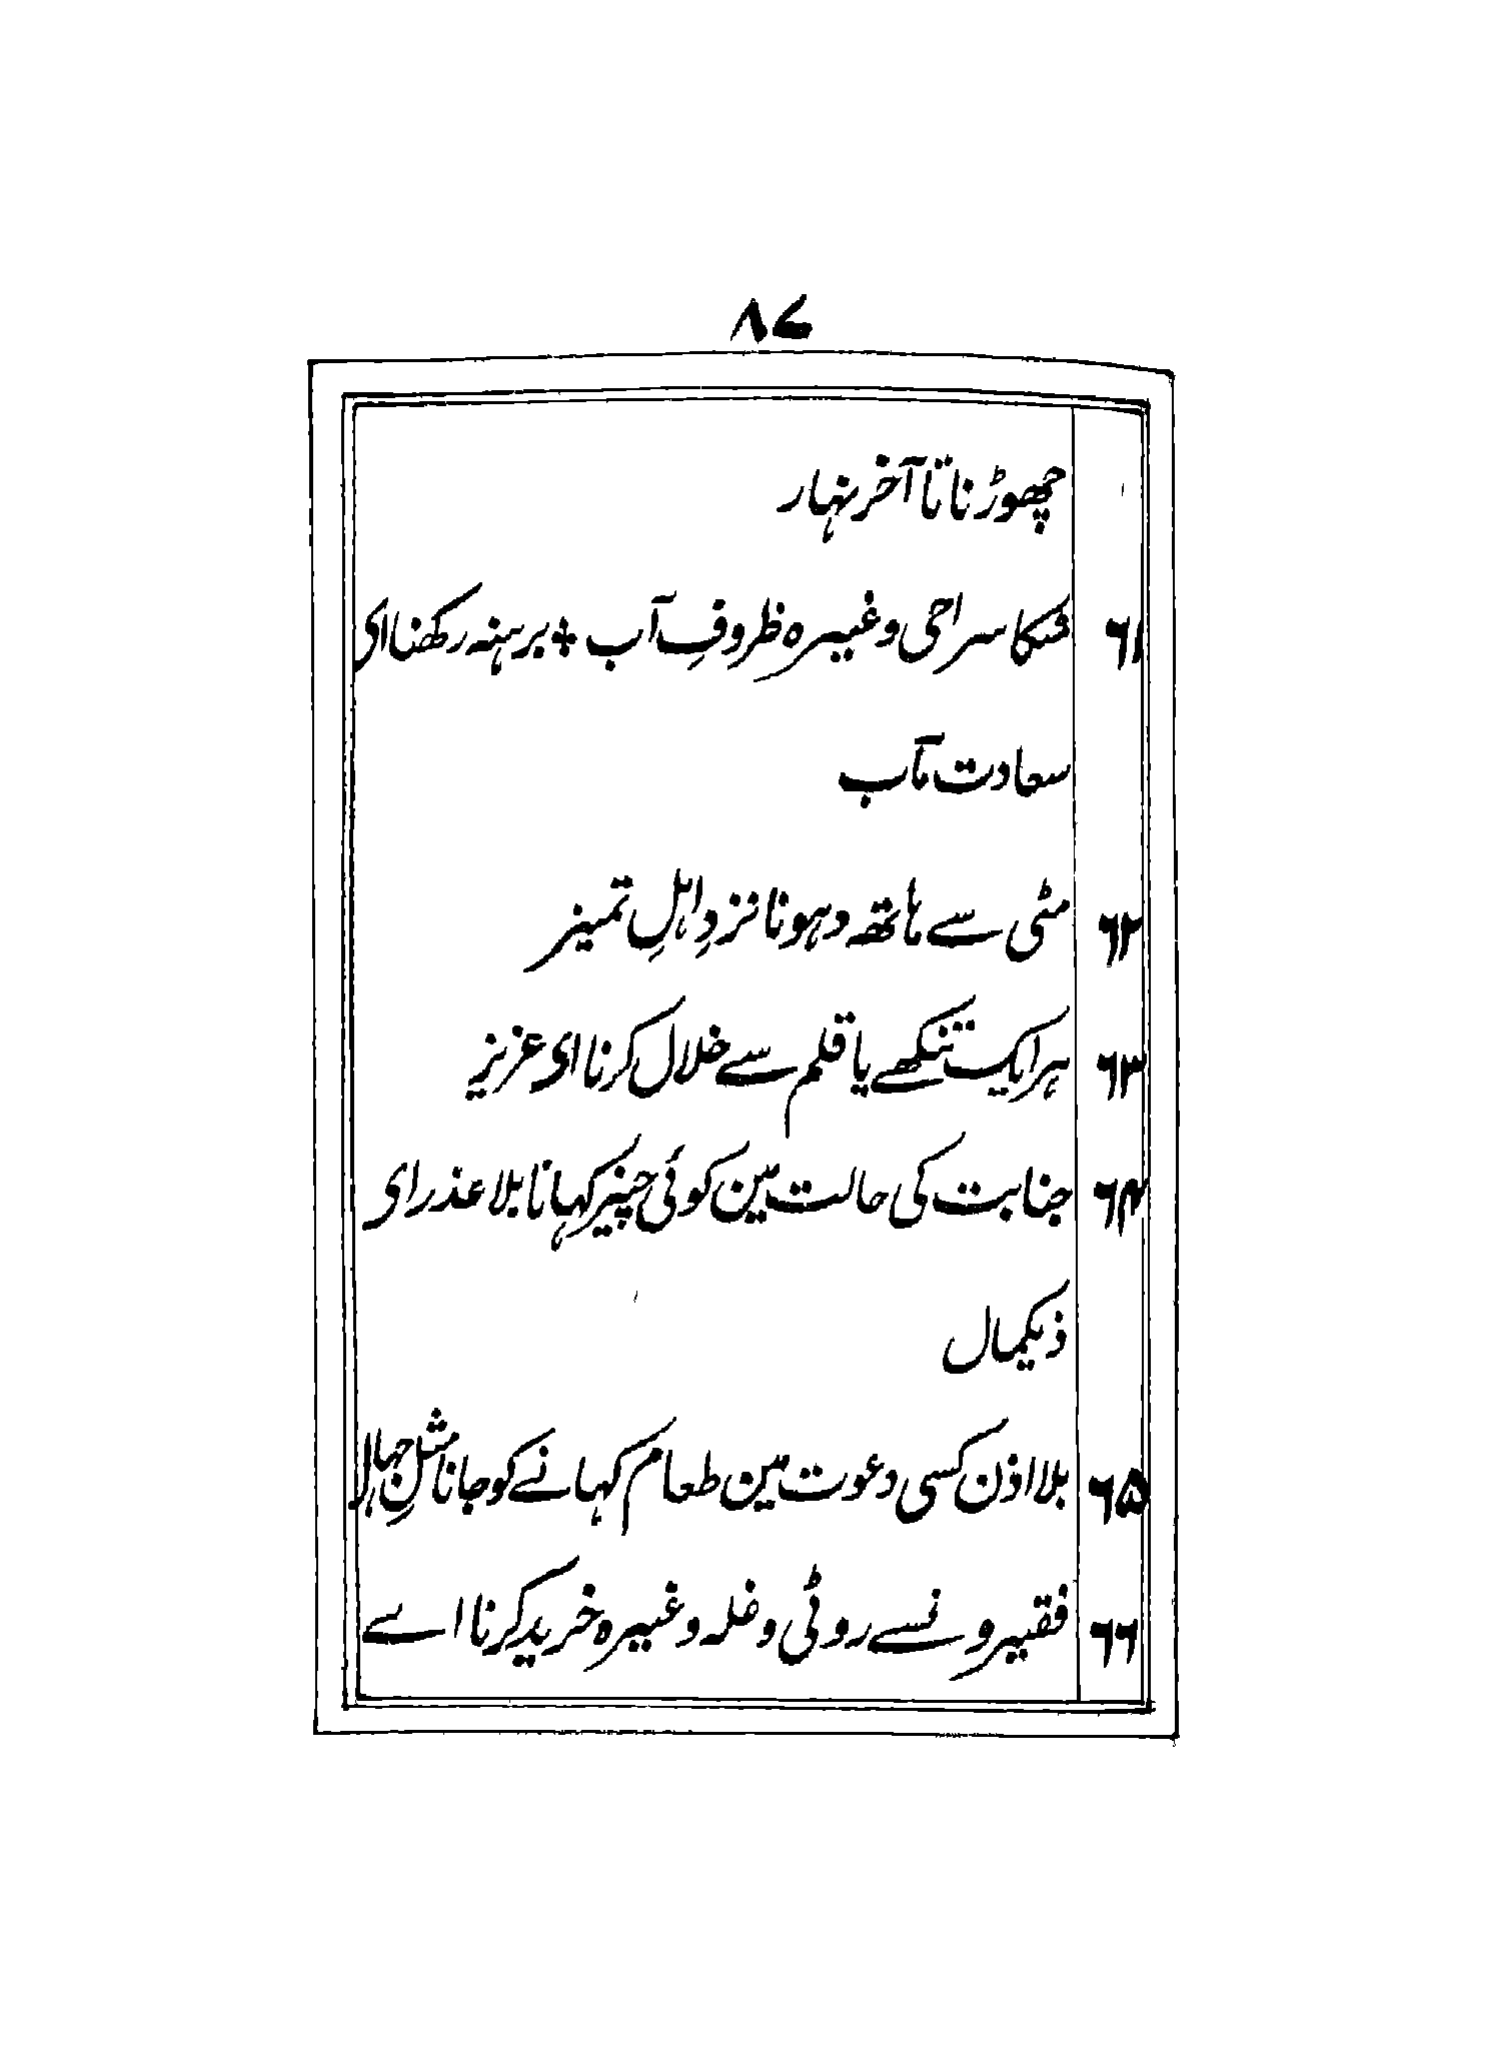 ۸۷
چھوڑنا تا آخر نہار
۶۱ مٹکا سراحی وغیرہ ظروفِ آب + برہنہ رکھنا ای
سعادت مآب
۶۲ مٹی سے ہاتھہ دہونا نزدِ اہلِ تمیز
۶۳ ہر ایک تنکھے یا قلم سے خلال کرنا ای عزیز
۶۴ جنابت کی حالت مین کوئی چیز کہانا بلا عذر ای
ذیکمال
۶۵ بلا اذن کسی دعوت مین طعام کہانے کو جانا مثلِ جہال
۶۶ فقیرونسے روٹی وغلہ وغیرہ خرید کرنا اے